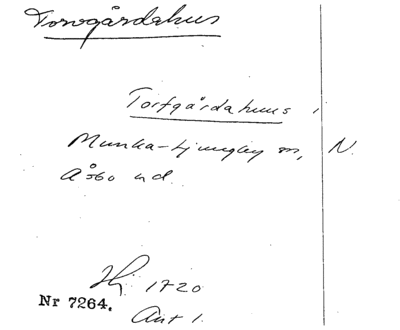 Torvgårdahus
Torfgårdahuus i
Munka-Ljungby sn, N.
Åsbo hd.
Hj. 1720
Nr 7264.
Ant 1.